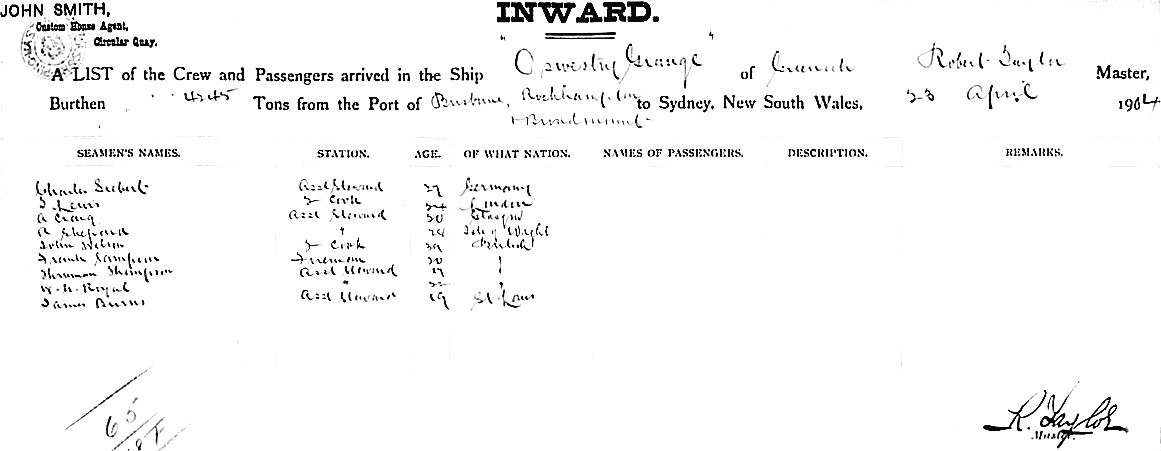 JOHN SMITH,
Custom House Agent,
Circular Quay.
INWARD.
A LIST of the Crew and Passengers arrived in the Ship "Oswestry Grange" of Greenock Robert Taylor Master,
Burthen 4245 Tons from the Port of Brisbane, Rockhampton to Sydney, New South Wales, 23 April 1904
+ Broadmount
SEAMEN'S NAMES. STATION. AGE. OF WHAT NATION. NAMES OF PASSENGERS. DESCRIPTION. REMARKS.
Charles Siebert Asst Steward 27 Germany
Lewis 2 Cook 24 London
A Craig Asst Steward 30 Glasgow
R Shepard " 28 Isle of Wight
John Wilson 2 Cook 39 British
Frank Sampson Fireman 30 "
Thurman Thompson Asst Steward 19 "
W. H. Royal " 22 "
James Burns Asst Steward 19 St Louis
65
R. Taylor
Master.